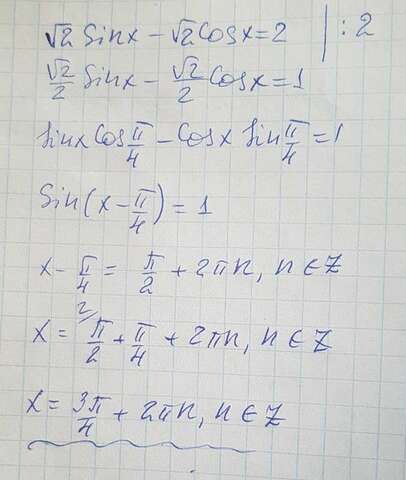 √2 Sinx − √2 Cosx = 2 | : 2
√2/2 Sinx − √2/2 Cosx = 1
Sinx Cos π/4 − Cosx Sin π/4 = 1
Sin(x − π/4) = 1
x − π/4 = π/2 + 2πn, n ∈ Z
x = π/2 + π/4 + 2πn, n ∈ Z
x = 3π/4 + 2πn, n ∈ Z